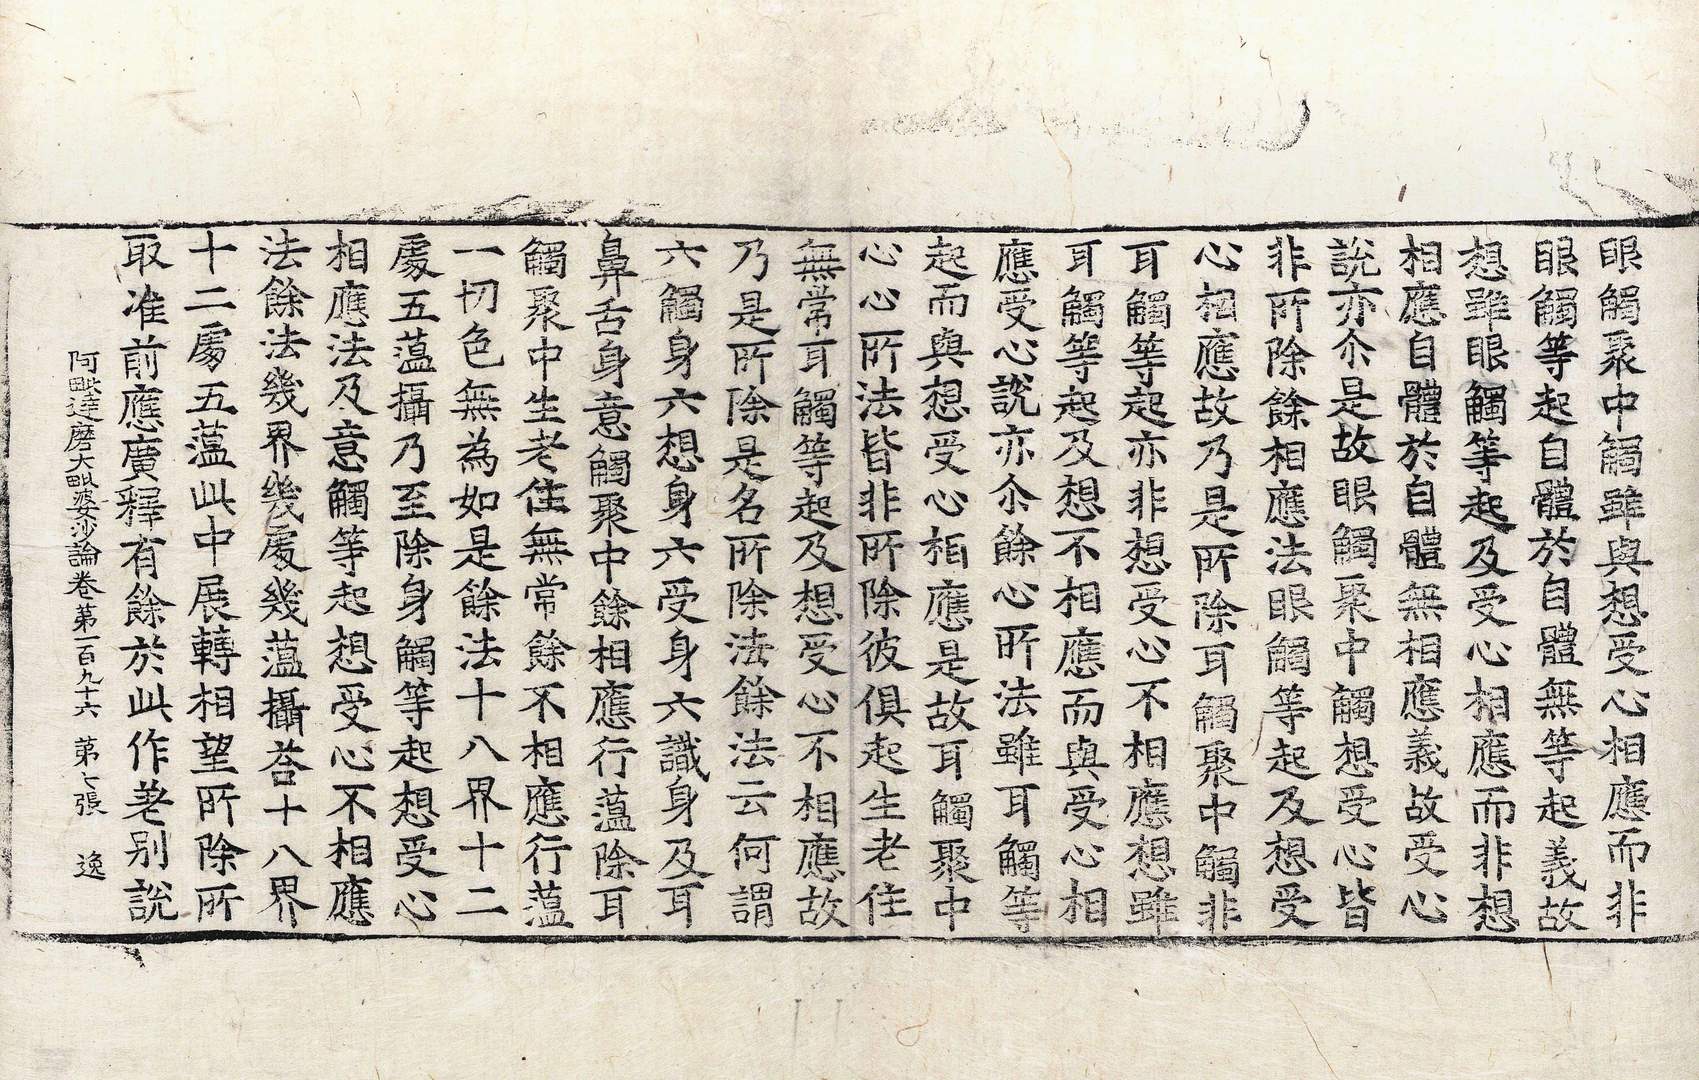 眼觸聚中觸雖與想受心相應而非
眼觸等起自體於自體無等起義故
想雖眼觸等起及受心相應而非想
相應自體於自體無相應義故受心
說亦尒是故眼觸聚中觸想受心皆
非所除餘相應法眼觸等起及想受
心相應故乃是所除耳觸聚中觸非
耳觸等起亦非想受心不相應想雖
耳觸等起及想不相應而與受心相
應受心說亦尒餘心所法雖耳觸等
起而與想受心相應是故耳觸聚中
心心所法皆非所除彼俱起生老住
無常耳觸等起及想受心不相應故
乃是所除是名所除法餘法云何謂
六觸身六想身六受身六識身及耳
鼻舌身意觸聚中餘相應行蘊除耳
觸聚中生老住無常餘不相應行蘊
一切色無為如是餘法十八界十二
處五蘊攝乃至除身觸等起想受心
相應法及意觸等起想受心不相應
法餘法幾界幾處幾蘊攝荅十八界
十二處五蘊此中展轉相望所除所
取准前應廣釋有餘於此作差別說
阿毗達磨大毗婆沙論卷第一百九十六 第七張 逸